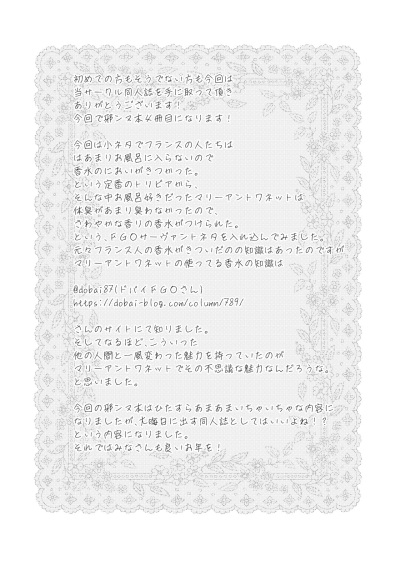 初めての方もそうでない方も今回は
当サークル同人誌を手に取って頂き
ありがとうございます!
今回で卵ンヌ本4冊目になります!
今回は小ネタでフランスの人たちは
はあまりお風呂に入らないので
香水のにおいがきつかった。
という定番のトリビアから、
そんな中お風呂好きだったマリーアントワネットは
体臭があまり臭わなかったので、
さわやかな香りの香水がつけられた。
という、FGOサーヴァントネタを入れ込んでみました。
元々フランス人の香水がきついだのの知識はあったのですが
マリーアントワネットの使ってる香水の知識は
@dobai87(ドバイFGOさん)
https://dobai-blog.com/column/789/
さんのサイトにて知りました。
そしてなるほど、こういった
他の人間と一風変わった魅力を持っていたのが
マリーアントワネットでその不思議な魅力なんだろうな。
と思いました。
今回の卵ンヌ本はひたすらあまあまいちゃいちゃな内容に
なりましたが、大晦日に出す同人誌としてはいいよね!?
という内容になりました。
それではみなさんも良いお年を!